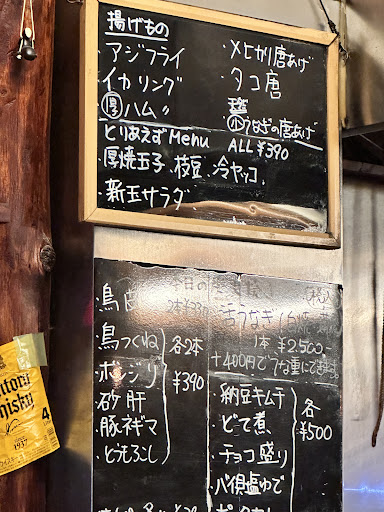 揚げもの
・アジフライ
・イカリング
・厚ハム〃
・メヒカリ唐あげ
・タコ唐
・小うなぎの唐あげ
とりあえずMenu ALL ¥390
厚焼玉子、枝豆、冷ヤッコ、
・新玉サラダ
本日の
2本
・鳥
・鳥つくね
・ボンジリ
・砂肝
・豚ネギマ
・とうもろこし
各2本
¥390
活うなぎ
1本 ¥2,500-
+400円でうな重にできます
・納豆キムチ
・どて煮
・チョコ盛り
各
¥500
Whisky
1937